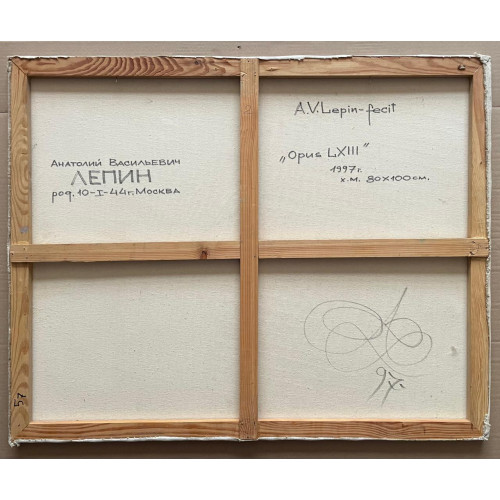 Анатолий Васильевич
ЛЕПИН
род. 10-I-44г. Москва
A.V. Lepin-fecit
„Opus LXIII"
1997г.
х.м. 80х100см.
97.
57